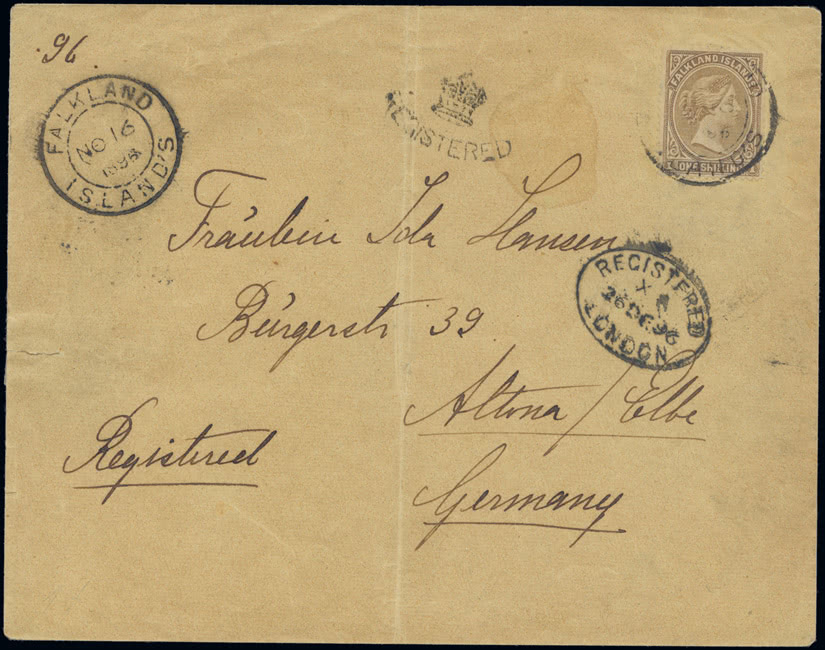 96
FALKLAND
NO 16
ISLAND'S
REGISTERED
FALKLAND ISLANDS
ONE SHILLING
Fräulein Ida Hansen
REGISTERED
26 DE 96
LONDON
Bürgerstr 39
Altona / Elbe
Registered
Germany